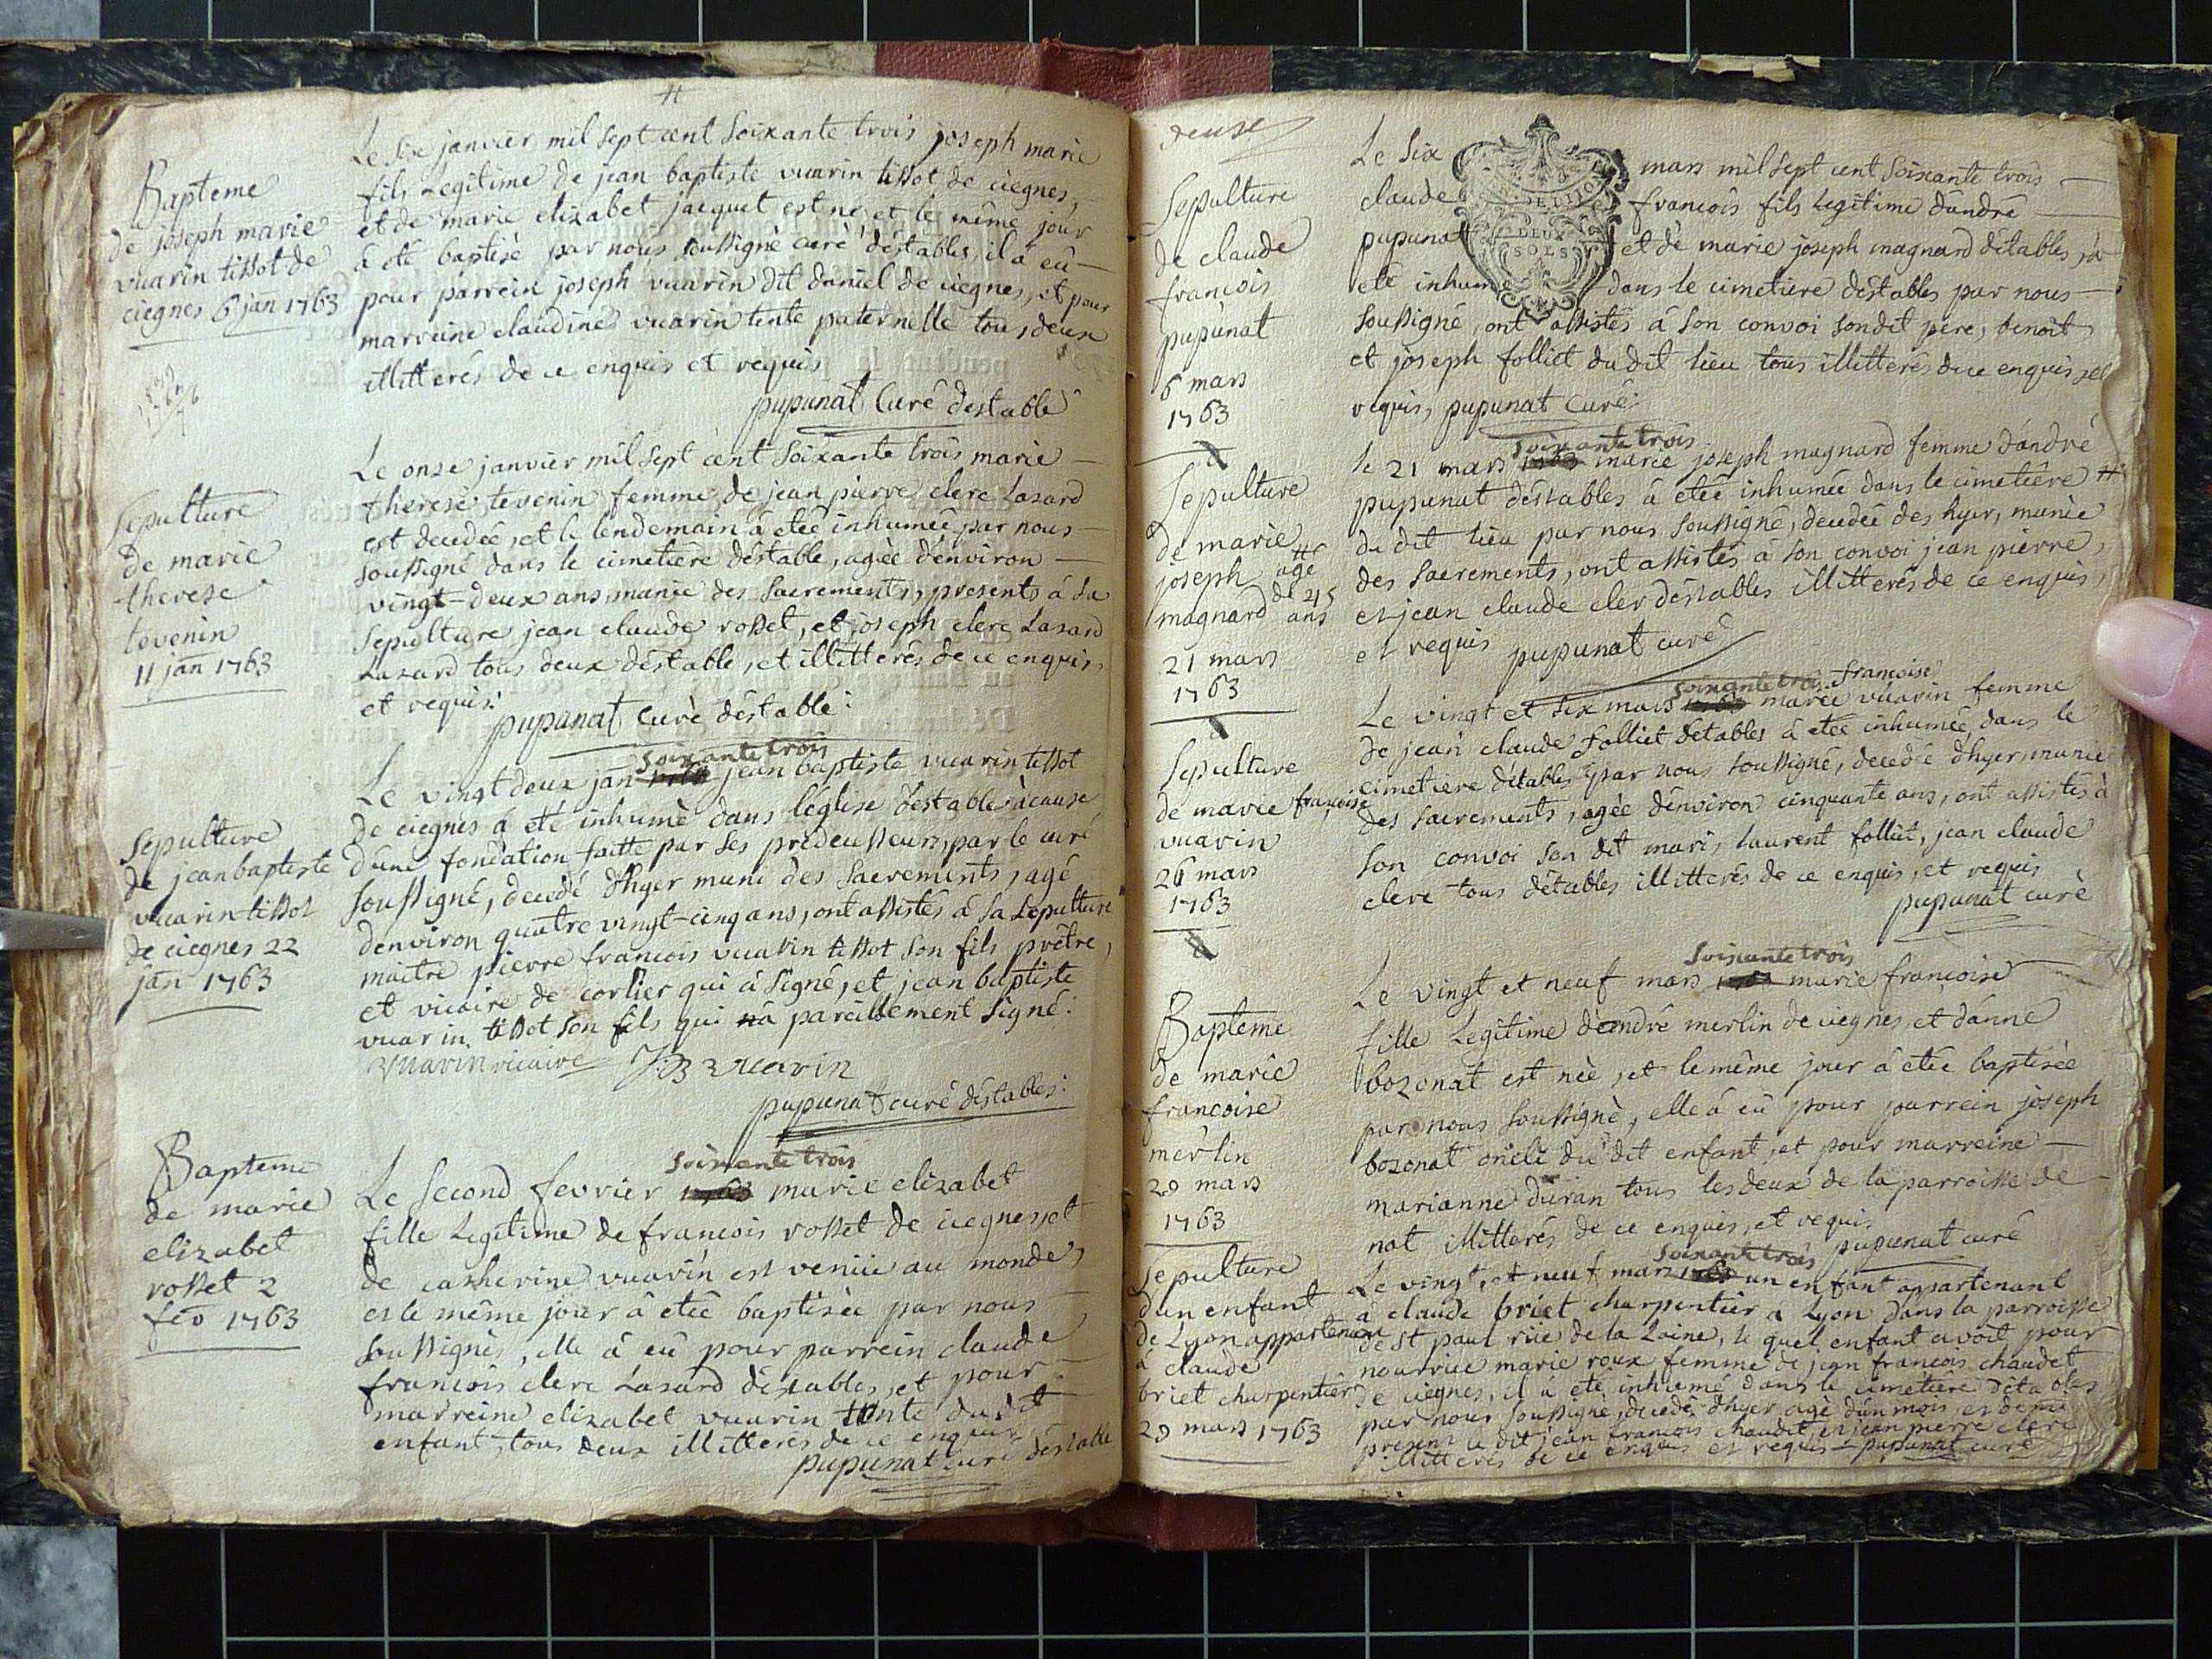 Bapteme
de joseph marie
vuarin tissot de
ciegnes 6 jan 1763
Le six janvier mil sept cent soixante trois joseph marie
fils legitime de jean baptiste vuarin tissot de ciegnes,
et de marie elizabet jacquet est né et le même jour
à été baptisé par nous soussigné curé déstables, il a eû
pour parrein joseph vuarin dit daniel de ciegnes, et pour
marreine claudine vuarin tente paternelle tous deux
illitterés de ce enquis et requis
pupunat Curé déstable
Sepulture
de marie
therese
tevenin
11 jan 1763
Le onze janvier mil sept cent soixante trois marie
therese tevenin femme de jean pierre clerc Lasard
est decedée, et le lendemain à etée inhumée par nous
soussigné dans le cimetiere déstable, agée d'environ
vingt-deux ans munie des sacrements, presents à sa
sepulture jean claude rosset, et joseph clerc Lasard
Lazard tous deux déstable, et illitterés de ce enquis,
et requis:
pupunat Curé déstable:
Sepulture
de jean baptiste
vuarin tissot
de ciegnes 22
jan 1763
soixante trois
Le vingt deux jan jean baptiste vuarin tissot
de ciegnes à eté inhumé dans l'église destable àcause
d'une fondation faitte par ses predecesseurs, par le curé
soussigné, decedé d'hyer muni des sacrements, agé
denviron quatre vingt-cinq ans, ont assistés à sa sepulture
maitre pierre francois vuarin tissot son fils prêtre,
et vicaire de corlier qui à signé, et jean baptiste
vuarin tissot son fils qui à pareillement signé:
Vuarin vicaire J:B vuarin
pupunat curé déstables:
Bapteme
de marie
elizabet
rosset 2
fev 1763
soixante trois
Le second fevrier 1763 marie elizabet
fille legitime de francois rosset de ciegnes, et
de catherine vuarin est venüe au monde,
et le même jour à etée baptisée par nous
soussignés, elle à eû pour parrein claude
francois clerc Lasard déstables, et pour
marreine elizabet vuarin tente du dit
enfant, tous deux illitterés de ce enquis
pupunat curé déstable
Sepulture
de claude
francois
pupunat
6 mars
1763
Le six mars mil sept cent soixante trois
claude francois fils legitime dandré
pupunat et de marie joseph magnard détables, à
eté inhumé dans le cimetiere déstables par nous
soussigné, ont assistés à son convoi sondit pere, benoit
et joseph folliet du dit lieu tous illitterés de ce enquis et
requis, pupunat Curé:
DEUX
SOLS
Sepulture
de marie
joseph agé
de 45
magnard ans
21 mars
1763
soixante trois
le 21 mars 1763 marie joseph magnard femme d'andré
pupunat déstables à etée inhumée dans le cimetiêre #
du dit lieu par nous soussigné, decedée des hyer, munie
des sacrements, ont assistés à son convoi jean pierre,
et jean claude cler déstables illitterés de ce enquis,
et requis pupunat curé
Sepulture
de marie françoise
vuarin
26 mars
1763
soixante trois françoise
Le vingt et six mars marie vuarin femme
de jean claude folliet détables à etée inhumée dans le
cimetiere détables par nous soussigné, decedée d'hyer, munie
des sacrements, agée d'environ cinquante ans, ont assistés à
son convoi son dit mari, laurent folliet, jean claude
clerc tous détables illitterés de ce enquis, et requis
pupunat curé
Bapteme
de marie
francoise
merlin
29 mars
1763
soixante trois
Le vingt et neuf mars marie francoise
fille legitime d'andré merlin de ciegnes, et d'anne
bozonat est née, et le même jour à etée baptisée
par nous soussigné, elle à eû pour parrein joseph
bozonat oncle du dit enfant, et pour marreine
marianne duran tous les deux de la parroisse de
nat illitterés de ce enquis, et requis
pupunat curé
Sepulture
d'un enfant
de Lyon appartenant
à claude
briet charpentier
29 mars 1763
soixante trois
Le vingt, et neuf mars un enfant appartenant
à claude briet charpentier a Lyon dans la parroisse
de st paul rüe de la Laine, le quel enfant avoit pour
nourrice marie roux femme de jean francois chaudet
de ciegnes, il à eté inhumé dans le cimetiere détables
par nous soussigné, decedé d'hyer agé d'un mois, et demi
present le dit jean francois chaudet, et jean pierre clerc
illitterés de ce enquis et requis - pupunat curé